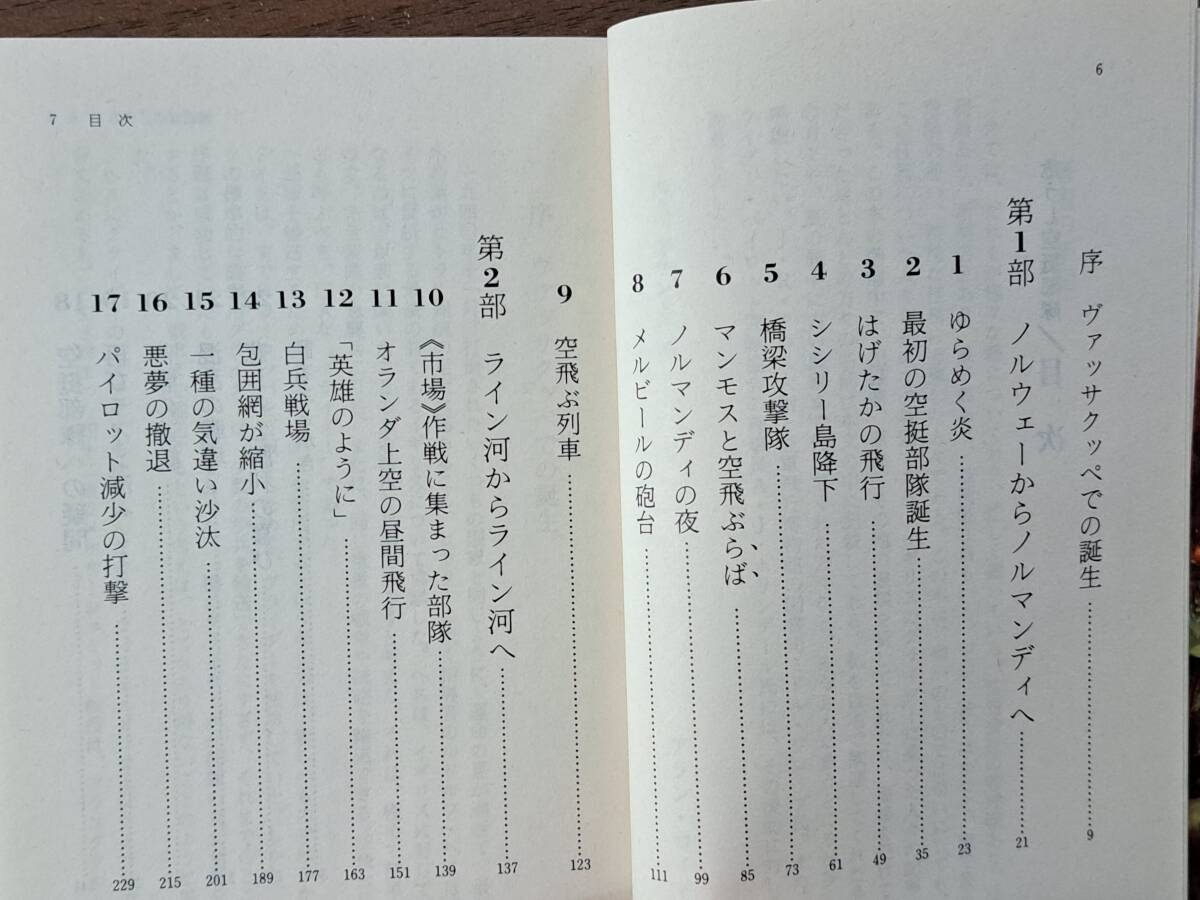 6
序 ヴァッサクッペでの誕生……9
第1部 ノルウェーからノルマンディへ……21
1 ゆらめく炎……23
2 最初の空挺部隊誕生……35
3 はげたかの飛行……49
4 シシリー島降下……61
5 橋梁攻撃隊……73
6 マンモスと空飛ぶらば……85
7 ノルマンディの夜……99
8 メルビールの砲台……111
7 目次
9 空飛ぶ列車……123
第2部 ライン河からライン河へ……137
10 《市場》作戦に集まった部隊……139
11 オランダ上空の昼間飛行……151
12 「英雄のように」……163
13 白兵戦場……177
14 包囲網が縮小……189
15 一種の気違い沙汰……201
16 悪夢の撤退……215
17 パイロット減少の打撃……229